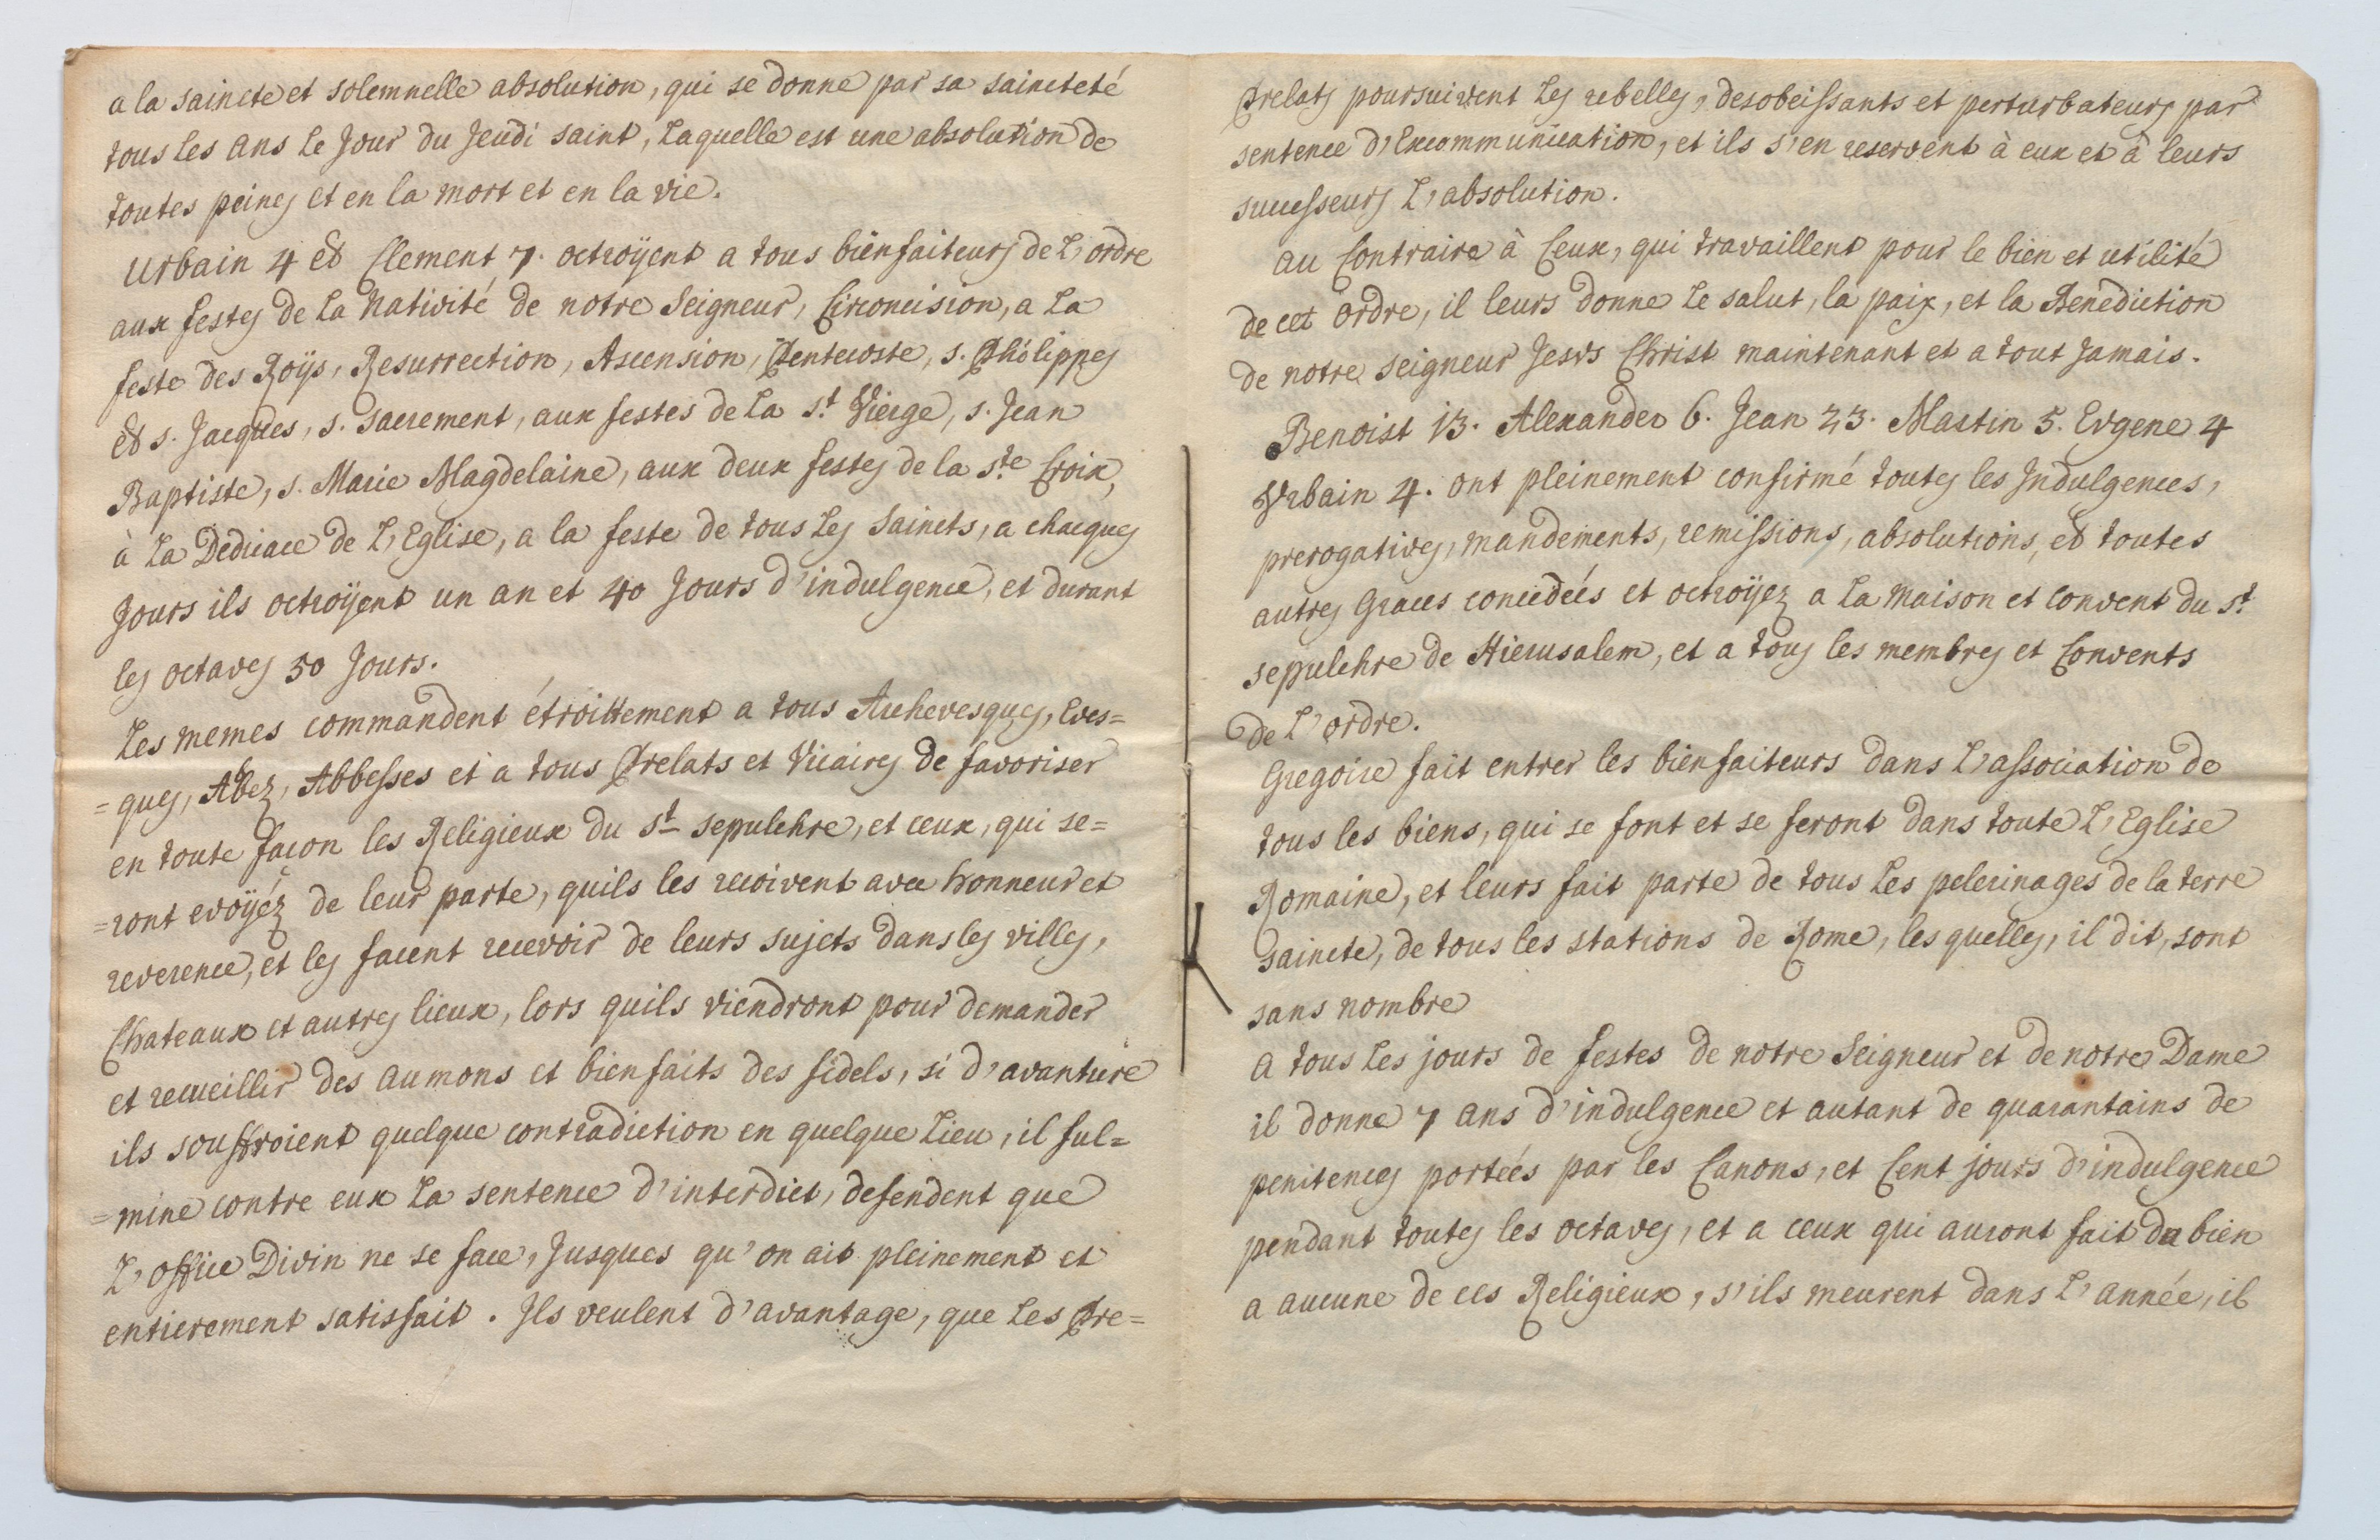 a la saincte et solemnelle absolution, qui se donne par sa saincteté
tous les ans le Jour du Jeudi saint, Laquelle est une absolution de
toutes peines et en la mort et en la vie.
Urbain 4 et Clement 7. octroÿent a tous bienfaiteurs de L'ordre
aux festes de La Nativité de notre Seigneur, Circoncision, a La
feste des Roÿs, Resurrection, Ascension, Pentecoste, s. Philippes
et s. Jacques, s. Sacrement, aux festes de La st Vierge, s. Jean
Baptiste, s. Marie Magdelaine, aux deux festes de la ste Croix,
à La Dedicace de L'Eglise, a la feste de tous Les Saincts, a chacques
Jours ils octroÿent un an et 40 Jours d'indulgence, et durant
les octaves 50 Jours.
Les memes commandent étroittement a tous Archevesques, Eves=
=ques, Abez, Abbesses et a tous Prelats et Vicaires de favoriser
en toute façon les Religieux du st sepulchre, et ceux, qui se=
=ront evoÿéz de leur parte, quils les recoivent avec honneur et
reverence, et les facent recevoir de leurs sujets dans les villes,
Chateaux et autres lieux, lors quils viendront pour demander
et recueillir des aumons et bienfaits des fidels, si d'avanture
ils souffroient quelque contradiction en quelque Lieu, il ful=
=mine contre eux La sentence d'interdict, defendent que
L'office Divin ne se face, Jusques qu'on ait pleinement et
entierement satisfait. Ils veulent d'avantage, que Les Pre=
Prelats poursuivent Les rebelles, desobeissants et perturbateurs par
sentence d'Excommunication, et ils s'en reservent à eux et à leurs
successeurs L'absolution.
au Contraire à Ceux, qui travaillent pour le bien et utilité
de cet ordre, il leurs donne Le salut, la paix, et la Benediction
de notre seigneur Jesvs Christ maintenant et a tout Jamais.
Benoist 13. Alexander 6. Jean 23. Martin 5. Evgene 4
Vrbain 4. ont pleinement confirmé toutes les Indulgences,
prerogatives, mandements, remissions, absolutions, et toutes
autres Graces concedeés et octroÿez a La Maison et Convent du st
sepulchre de Hierusalem, et a tous les membres et Convents
de L'ordre.
Gregoire fait entrer les bienfaiteurs dans L'association de
tous les biens, qui se font et se feront dans toute L'Eglise
Romaine, et leurs fait parte de tous Les pelerinages de la terre
saincte, de tous les stations de Rome, les quelles, il dit, sont
sans nombre
a tous Les jours de festes de notre Seigneur et de notre Dame
il donne 7 ans d'indulgence et autant de quarantains de
penitences porteés par les Canons, et Cent jours d'indulgence
pendant toutes les octaves, et a ceux qui auront fait du bien
a aucune de ces Religieux, s'ils meurent dans L'année, il